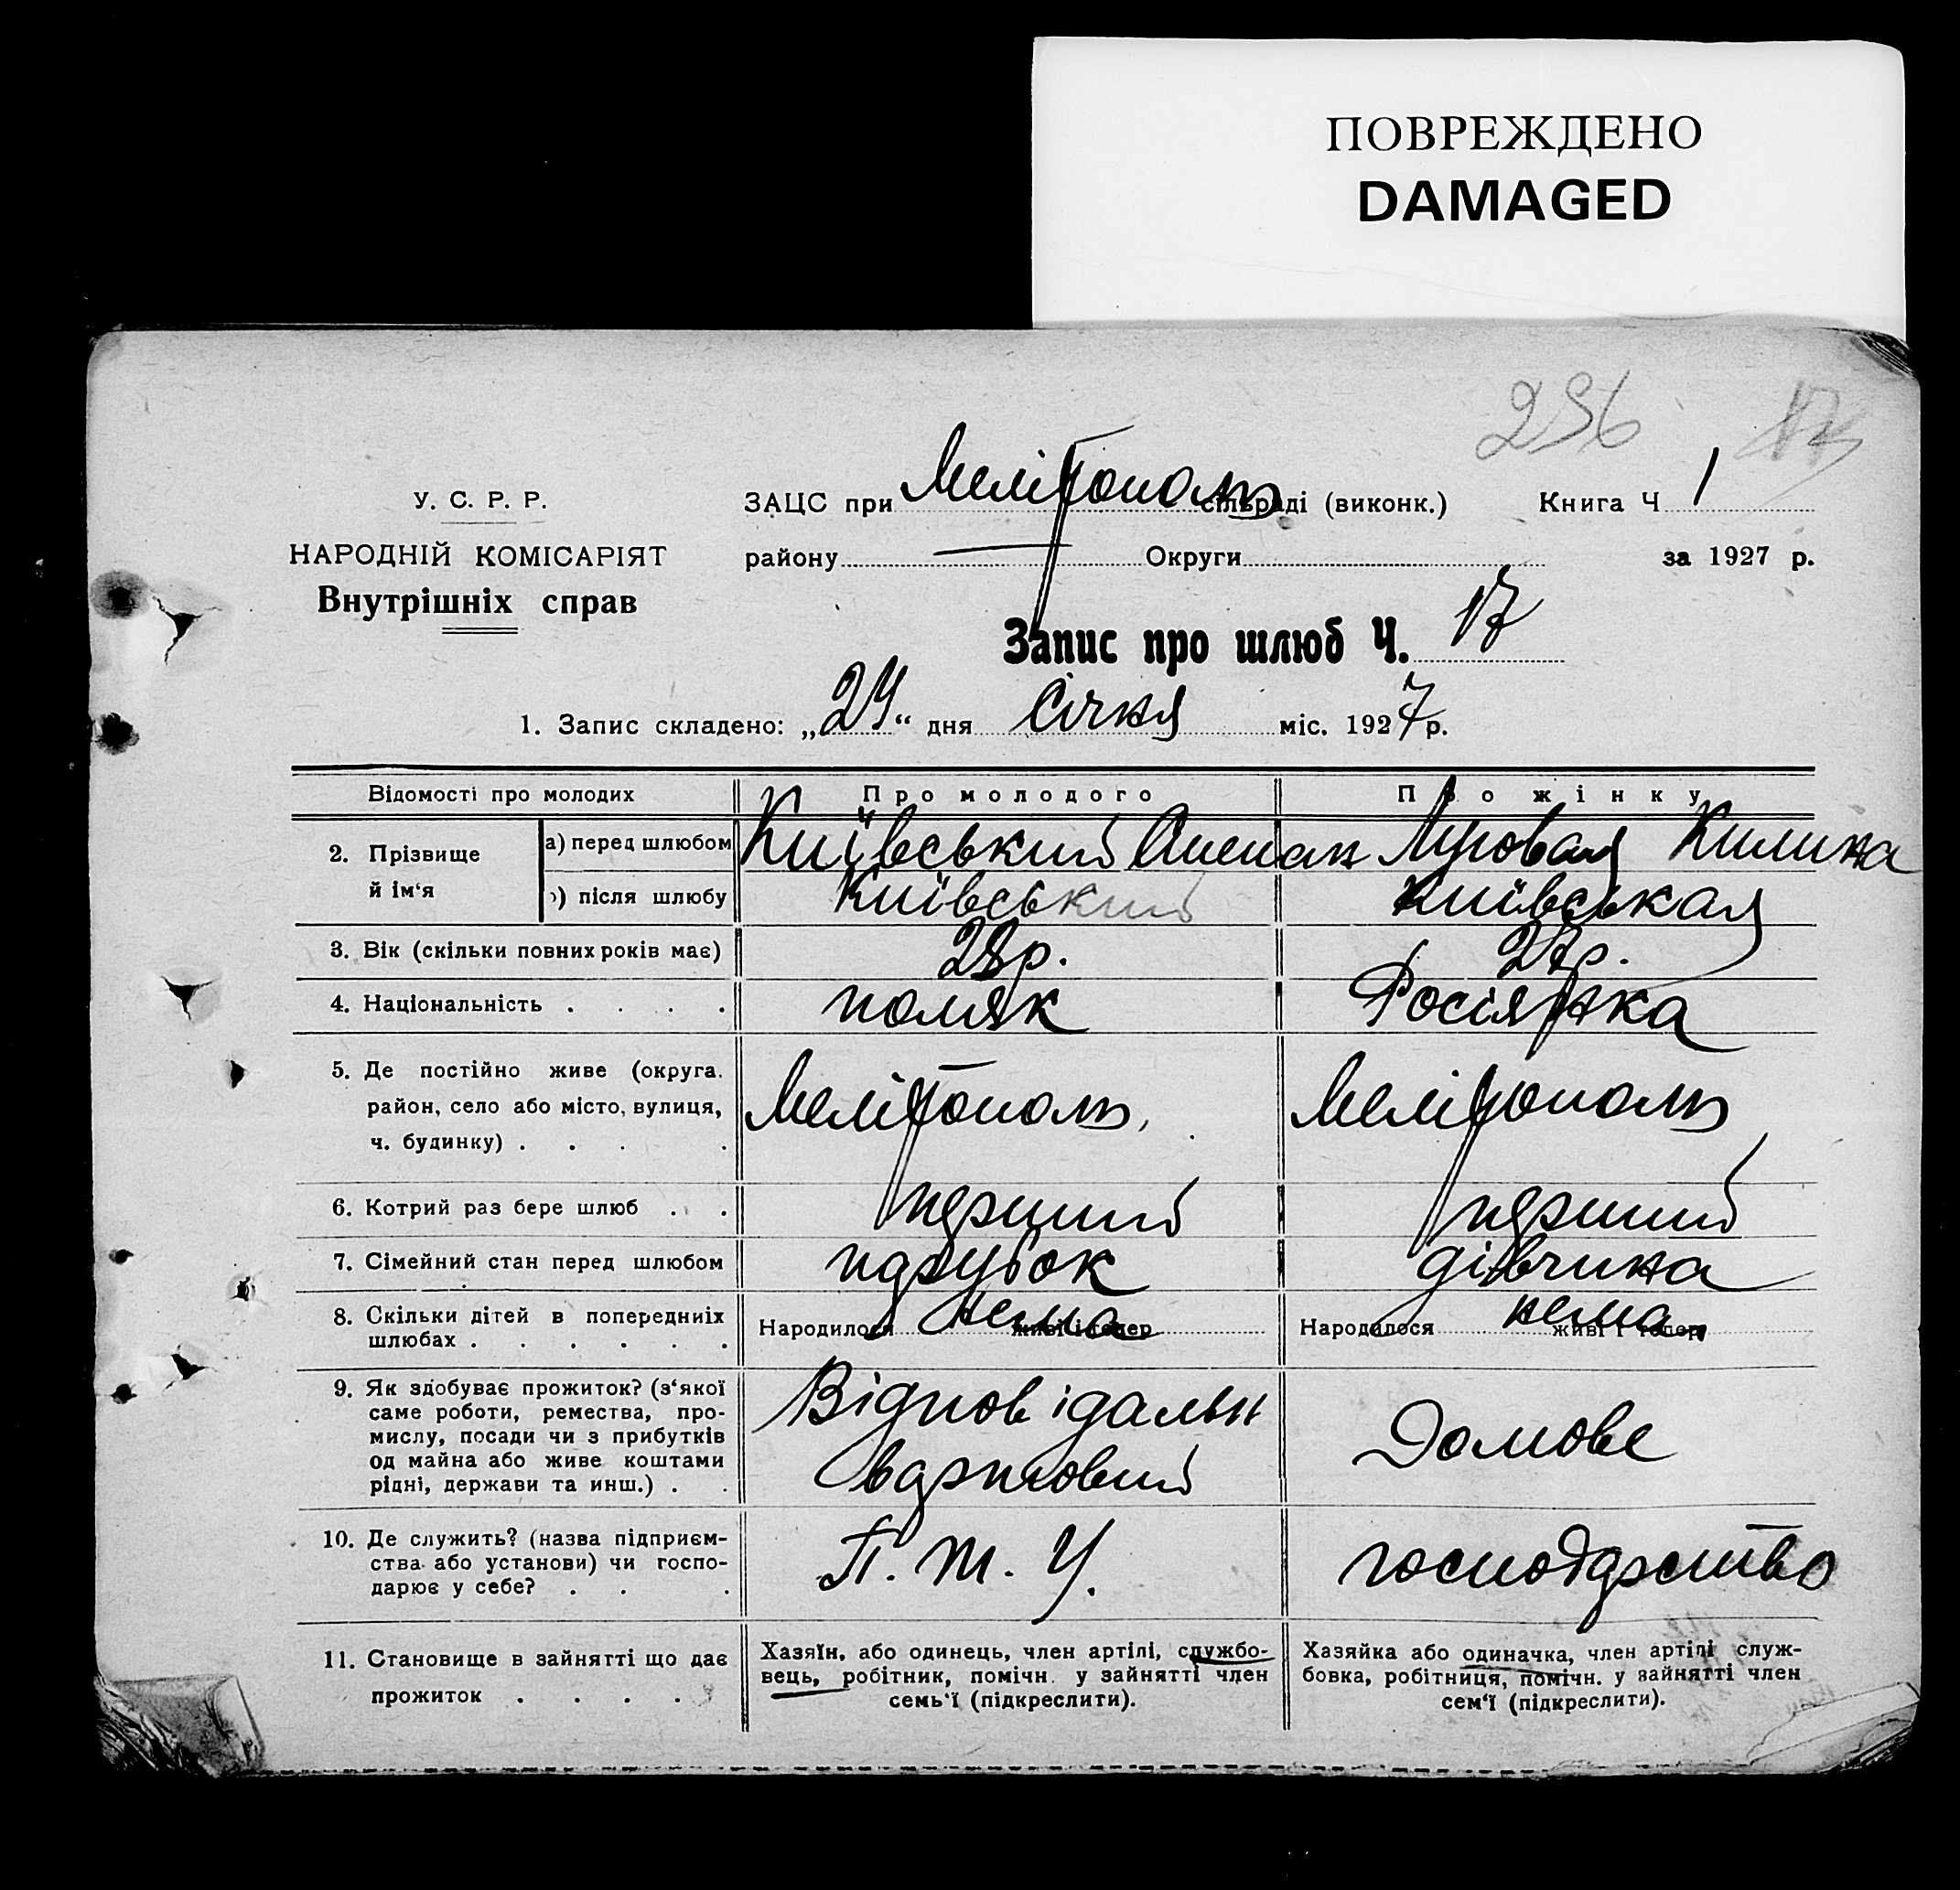 ПОВРЕЖДЕНО
DAMAGED
296 17
У. С. Р. Р.
ЗАЦС при Мелітополь сільраді (виконк.) Книга Ч 1
НАРОДНІЙ КОМІСАРІЯТ
району — Округи за 1927 р.
Внутрішніх справ
Запис про шлюб Ч. 17
1. Запис складено: „24“ дня Січня міс. 1927 р.
Відомості про молодих Про молодого Про жінку
2. Прізвище й ім‘я
а) перед шлюбом Київський Луговая Килина
б) після шлюбу Київський Київськая
3. Вік (скільки повних років має) 28 р. 27 р.
4. Національність . . . . поляк Росіянка
5. Де постійно живе (округа.
район, село або місто, вулиця,
ч. будинку) . . . . Мелітополь, Мелітополь
6. Котрий раз бере шлюб . . перший перший
7. Сімейний стан перед шлюбом парубок дівчина
8. Скільки дітей в попередниіх
шлюбах . . . . . . Народилося нема живі і тепер Народилося нема живі і тепер
9. Як здобуває прожиток? (з‘якої
саме роботи, ремества, про-
мислу, посади чи з прибутків
од майна або живе коштами
рідні, держави та инш.) . .
Відповідальн
вартовий
Домове
10. Де служить? (назва підприєм-
ства або установи) чи госпо-
дарює у себе? . . .
П. Т. У.
господарство
11. Становище в зайнятті що дає
прожиток . . . .
Хазяїн, або одинець, член артілі, службо-
вець, робітник, помічн. у зайнятті член
семь‘ї (підкреслити).
Хазяйка або одиначка, член артілі служ-
бовка, робітниця, помічн. у зайнятті член
сем‘ї (підкреслити).